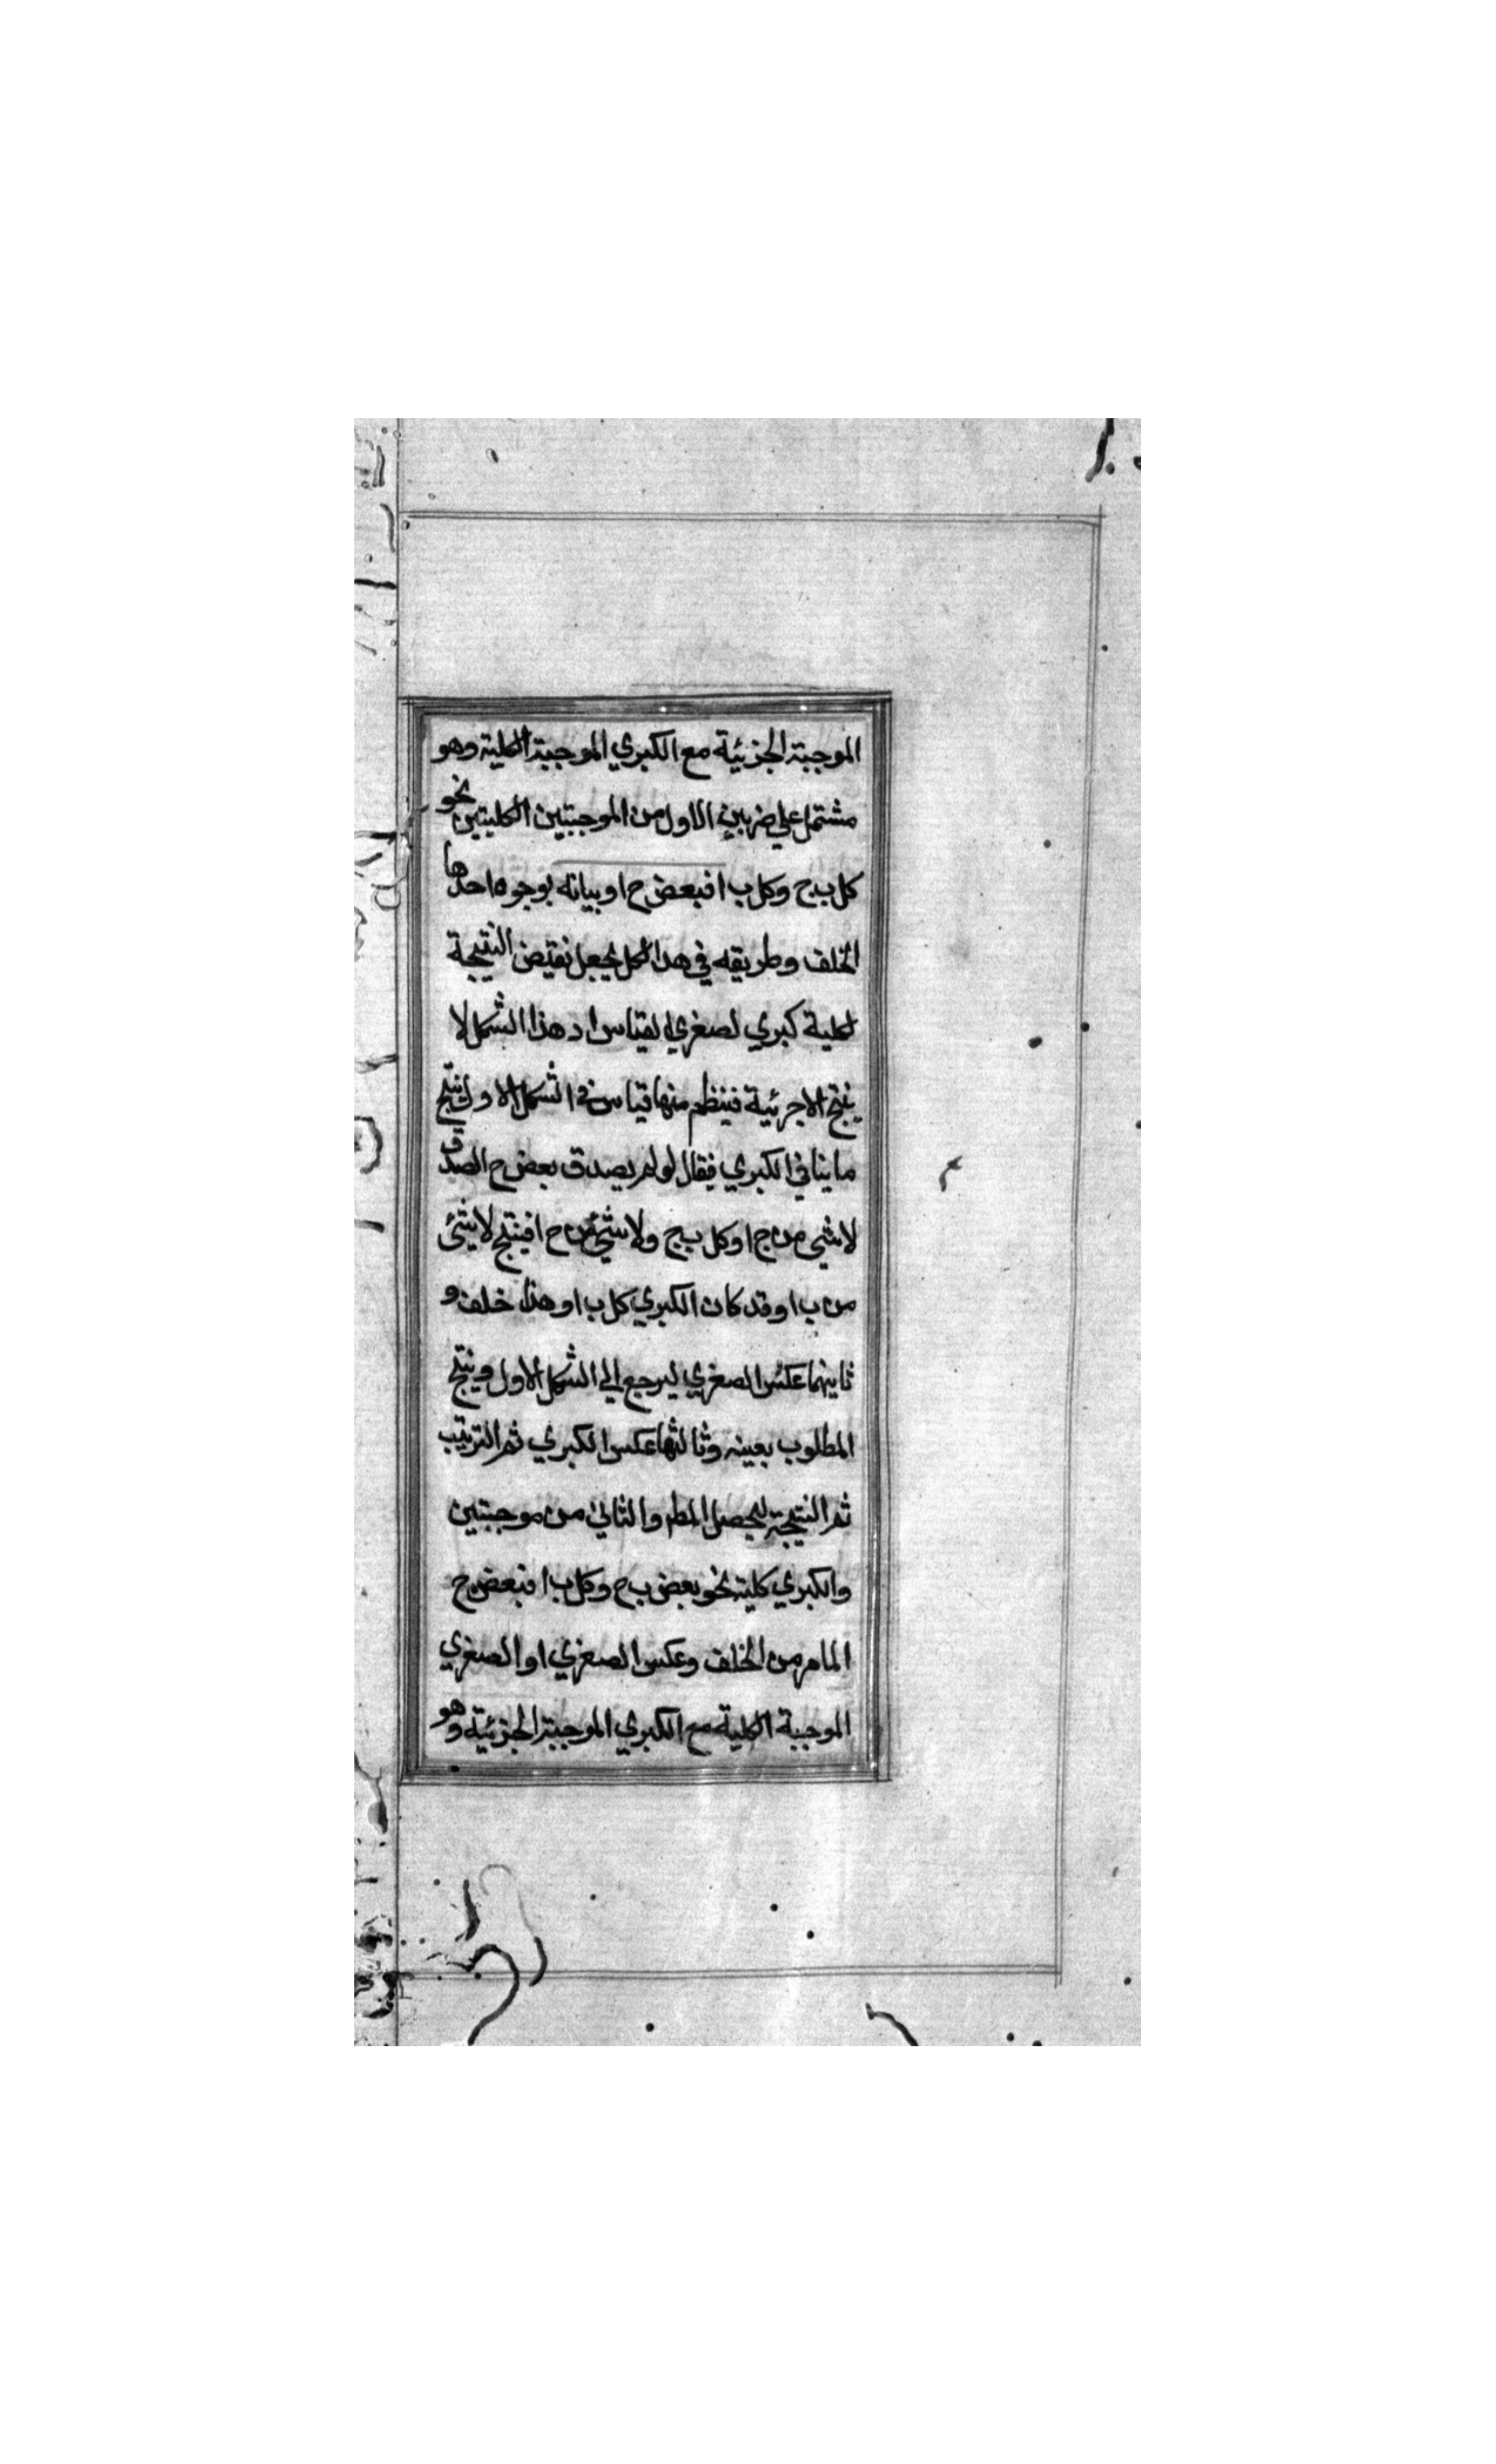 الموجبة الجزئية مع الكبري الموجبة الكلية وهو
مشتمل علي ضربين الاول من الموجبتين الكليتين نحو
كل ب ج وكل ب ا فبعض ح ا وبيانه بوجوه احدها
الخلف وطريقه في هدا لكل يجعل نقيض النتيجة
لكلية كبري لصغري القياس اد هذا الشكل لا
ينتج الا جرئية فينتظم منها قياس في الشكل الاول ينتج
ما ينافي الكبري فيقال لو لم يصدق بعض ح الصدق
لا شي من ج ا وكل ب ج ولا شئ من ح ا فينتج لا شئ
من ب ا وقد كان الكبري كل ب ا وهذا خلف و
ثانيهما عكس الصغري ليرجع الي الشكل الاول وينتج
المطلوب بعينه وثالثها عكس الكبري ثم الترتيب
ثم النتيجة ليحصل المطم والثاني من موجبتين
والكبري كلية نحو بعض ب ح وكل ب ا فبعض ح
ا لما مر من الخلف وعكس الصغري او الصغري
الموجبة الكلية مع الكبري الموجبة الجزئية وهو